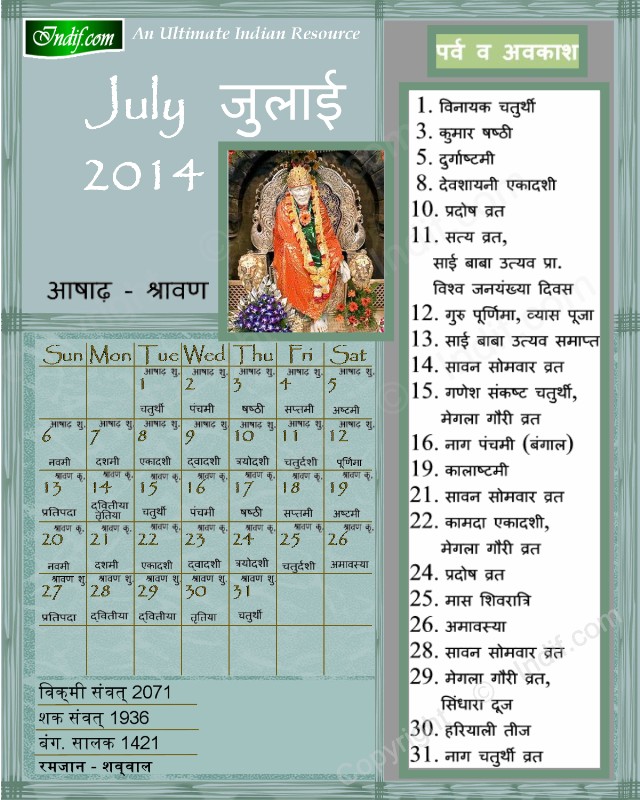 Indif.com An Ultimate Indian Resource
July जुलाई
2014
आषाढ़ - श्रावण
Sun Mon Tue Wed Thu Fri Sat
आषाढ़ शु. आषाढ़ शु. आषाढ़ शु. आषाढ़ शु. आषाढ़ शु.
1 2 3 4 5
चतुर्थी पंचमी षष्ठी सप्तमी अष्टमी
आषाढ़ शु. आषाढ़ शु. आषाढ़ शु. आषाढ़ शु. आषाढ़ शु. आषाढ़ शु. आषाढ़ शु.
6 7 8 9 10 11 12
नवमी दशमी एकादशी द्वादशी त्रयोदशी चतुर्दशी पूर्णिमा
श्रावण कृ. श्रावण कृ. श्रावण कृ. श्रावण कृ. श्रावण कृ. श्रावण कृ. श्रावण कृ.
13 14 15 16 17 18 19
प्रतिपदा द्वितीया चतुर्थी पंचमी षष्ठी सप्तमी अष्टमी
तृतिया
श्रावण कृ. श्रावण कृ. श्रावण कृ. श्रावण कृ. श्रावण कृ. श्रावण कृ. श्रावण कृ.
20 21 22 23 24 25 26
नवमी दशमी एकादशी द्वादशी त्रयोदशी चतुर्दशी अमावस्या
श्रावण शु. श्रावण शु. श्रावण शु. श्रावण शु. श्रावण शु.
27 28 29 30 31
प्रतिपदा द्वितीया द्वितीया तृतिया चतुर्थी
विक्मी संवत् 2071
शक संवत् 1936
बंग. सालक 1421
रमजान - शव्वाल
पर्व व अवकाश
1. विनायक चतुर्थी
3. कुमार षष्ठी
5. दुर्गाष्टमी
8. देवशायनी एकादशी
10. प्रदोष व्रत
11. सत्य व्रत,
साई बाबा उत्यव प्रा.
विश्व जनयंख्या दिवस
12. गुरु पूर्णिमा, व्यास पूजा
13. साई बाबा उत्यव समाप्त
14. सावन सोमवार व्रत
15. गणेश संकष्ट चतुर्थी,
मेगला गौरी व्रत
16. नाग पंचमी (बंगाल)
19. कालाष्टमी
21. सावन सोमवार व्रत
22. कामदा एकादशी,
मेगला गौरी व्रत
24. प्रदोष व्रत
25. मास शिवरात्रि
26. अमावस्या
28. सावन सोमवार व्रत
29. मेगला गौरी व्रत,
सिंधारा दूज
30. हरियाली तीज
31. नाग चतुर्थी व्रत
Copyright © Indif.com